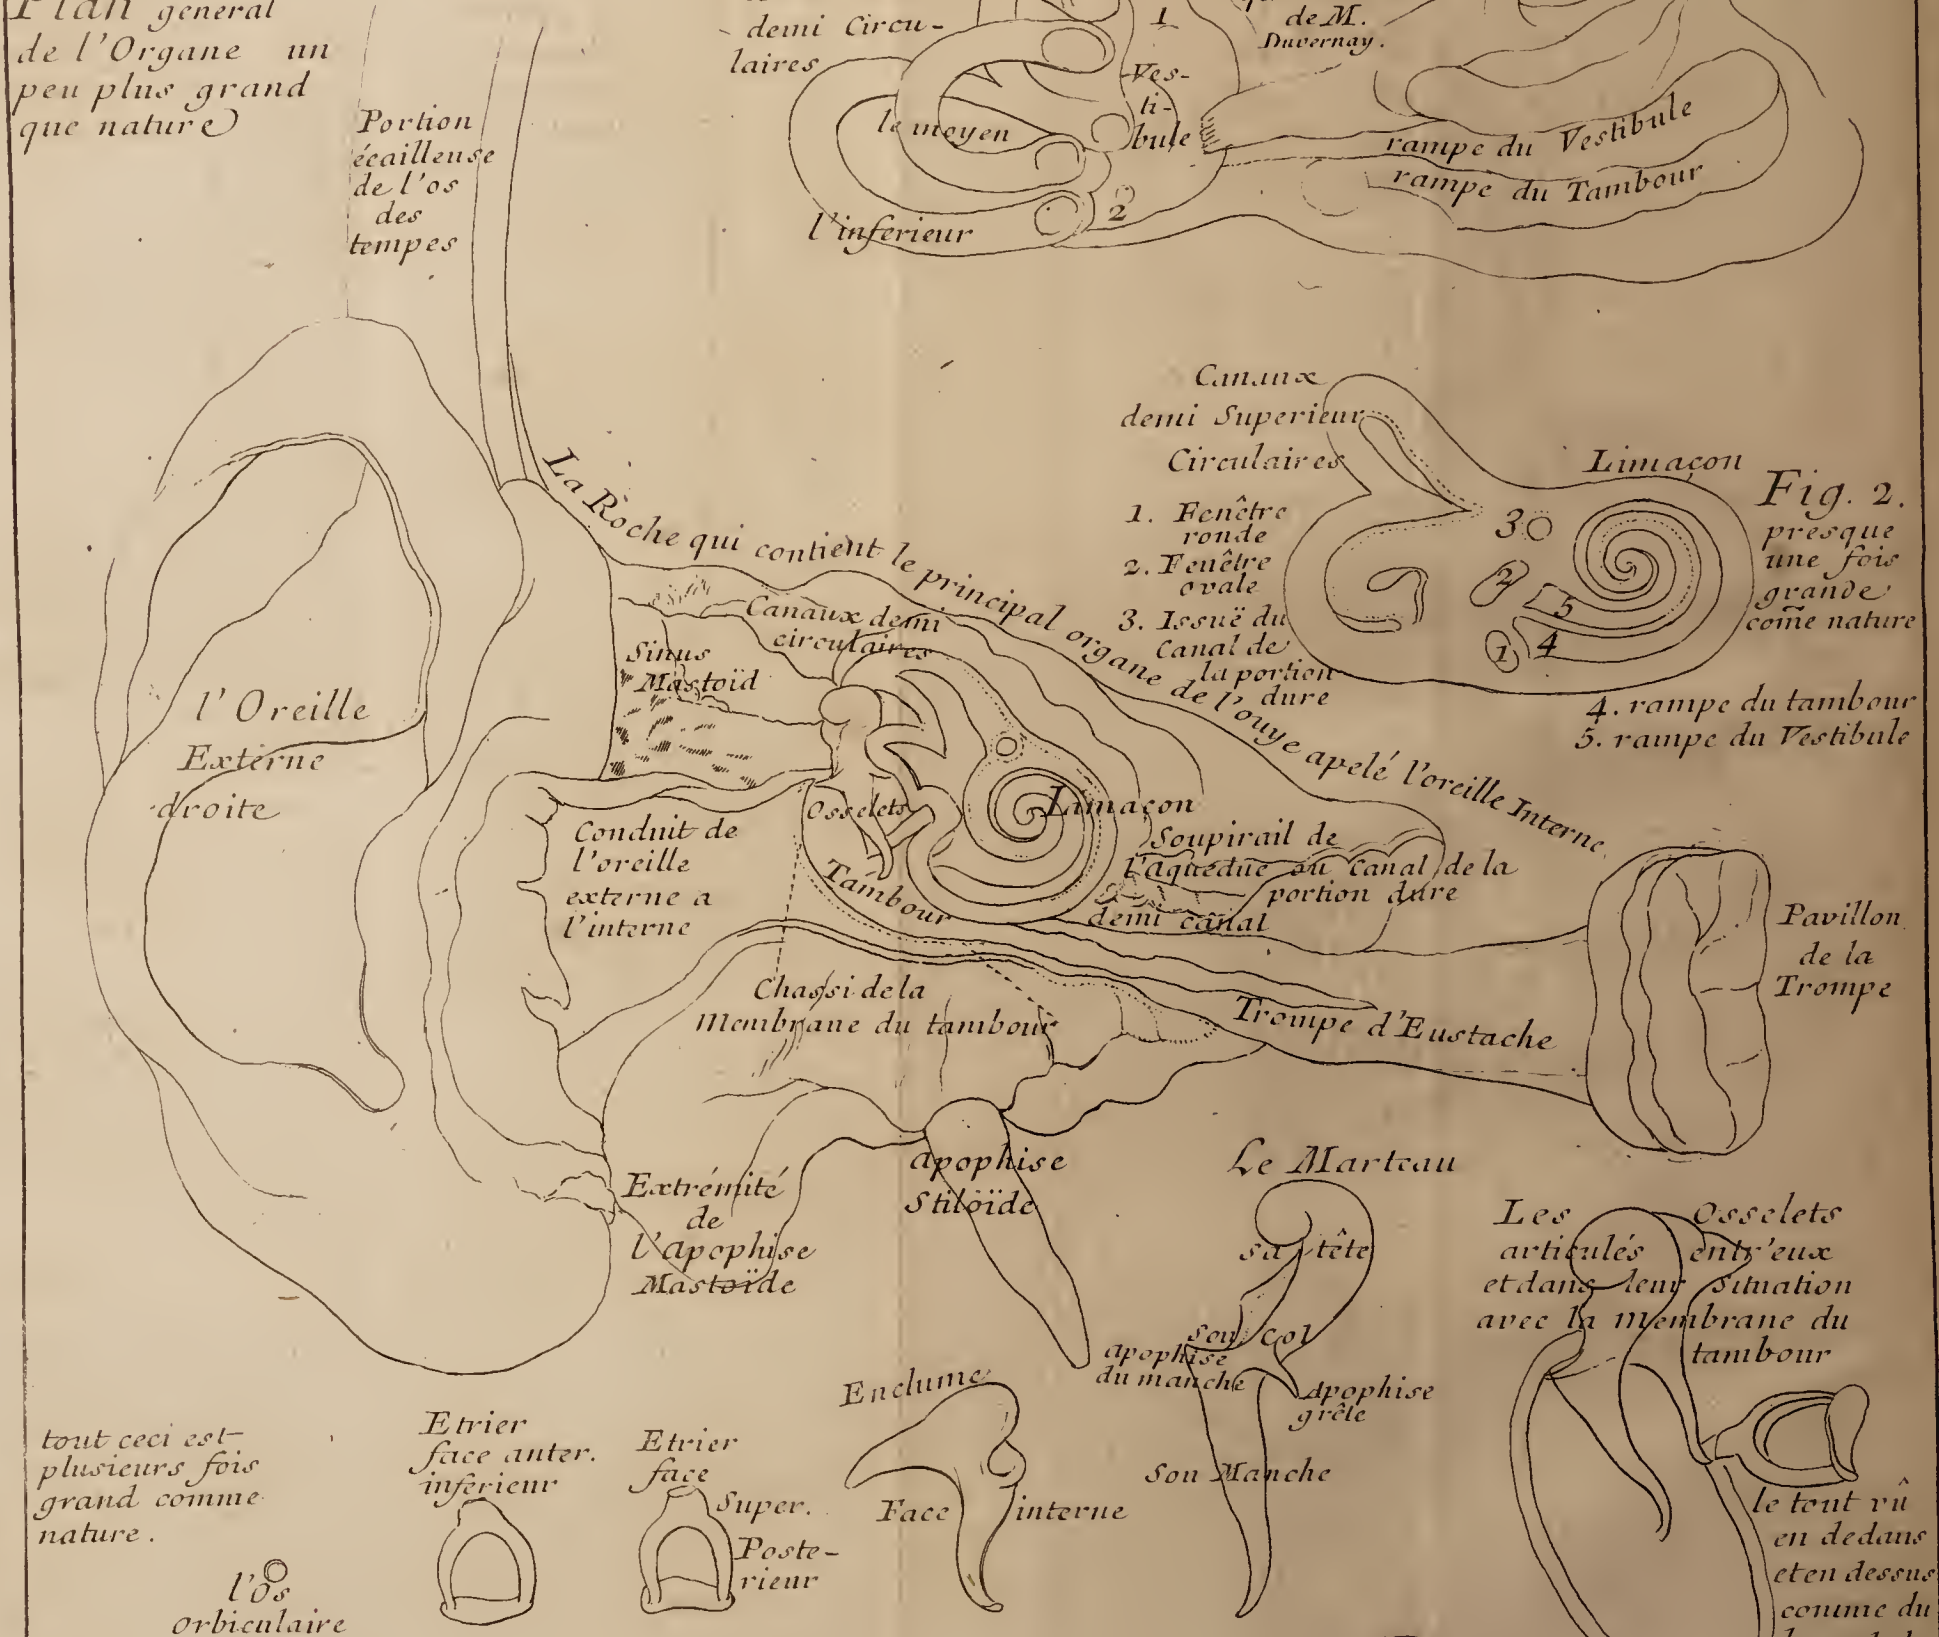 Plan general
de l'Organe un
peu plus grand
que nature
Portion
écailleuse
de l'os
des
tempes
demi Circu-
laires
le moyen
l'inferieur
1
Ves-
ti-
bule
2
de M.
Duvernay.
rampe du Vestibule
rampe du Tambour
Canaux
demi Superieur
Circulaires
1. Fenêtre
ronde
2. Fenêtre
ovale
3. Issuë du
Canal de
la portion
dure
Limaçon
3
2
5
1
4
Fig. 2.
presque
une fois
grande
come nature
4. rampe du tambour
5. rampe du Vestibule
La Roche qui contient le principal organe de l'ouye apelé l'oreille Interne.
Canaux demi
circulaires
Sinus
Mastoïd
l'Oreille
Externe
droite
Osselets
Limaçon
Tambour
Conduit de
l'oreille
externe a
l'interne
Soupirail de
l'aqueduc ou canal de la
portion dure
demi canal
Pavillon
de la
Trompe
Chassi de la
Membrane du tambour
Trompe d'Eustache
Extrémité
de
l'Apophise
Mastoïde
apophise
Stiloïde
Le Marteau
sa tête
son col
apophise
du manche
Apophise
grêle
Son Manche
Les Osselets
articulés entr'eux
et dans leur Situation
avec la Membrane du
tambour
le tout vû
en dedans
et en dessus
comme du
tout ceci est
plusieurs fois
grand comme
nature.
l'Os
Orbiculaire
Etrier
face anter.
inferieur
Etrier
face
Super.
Poste-
rieur
Enclume
Face interne